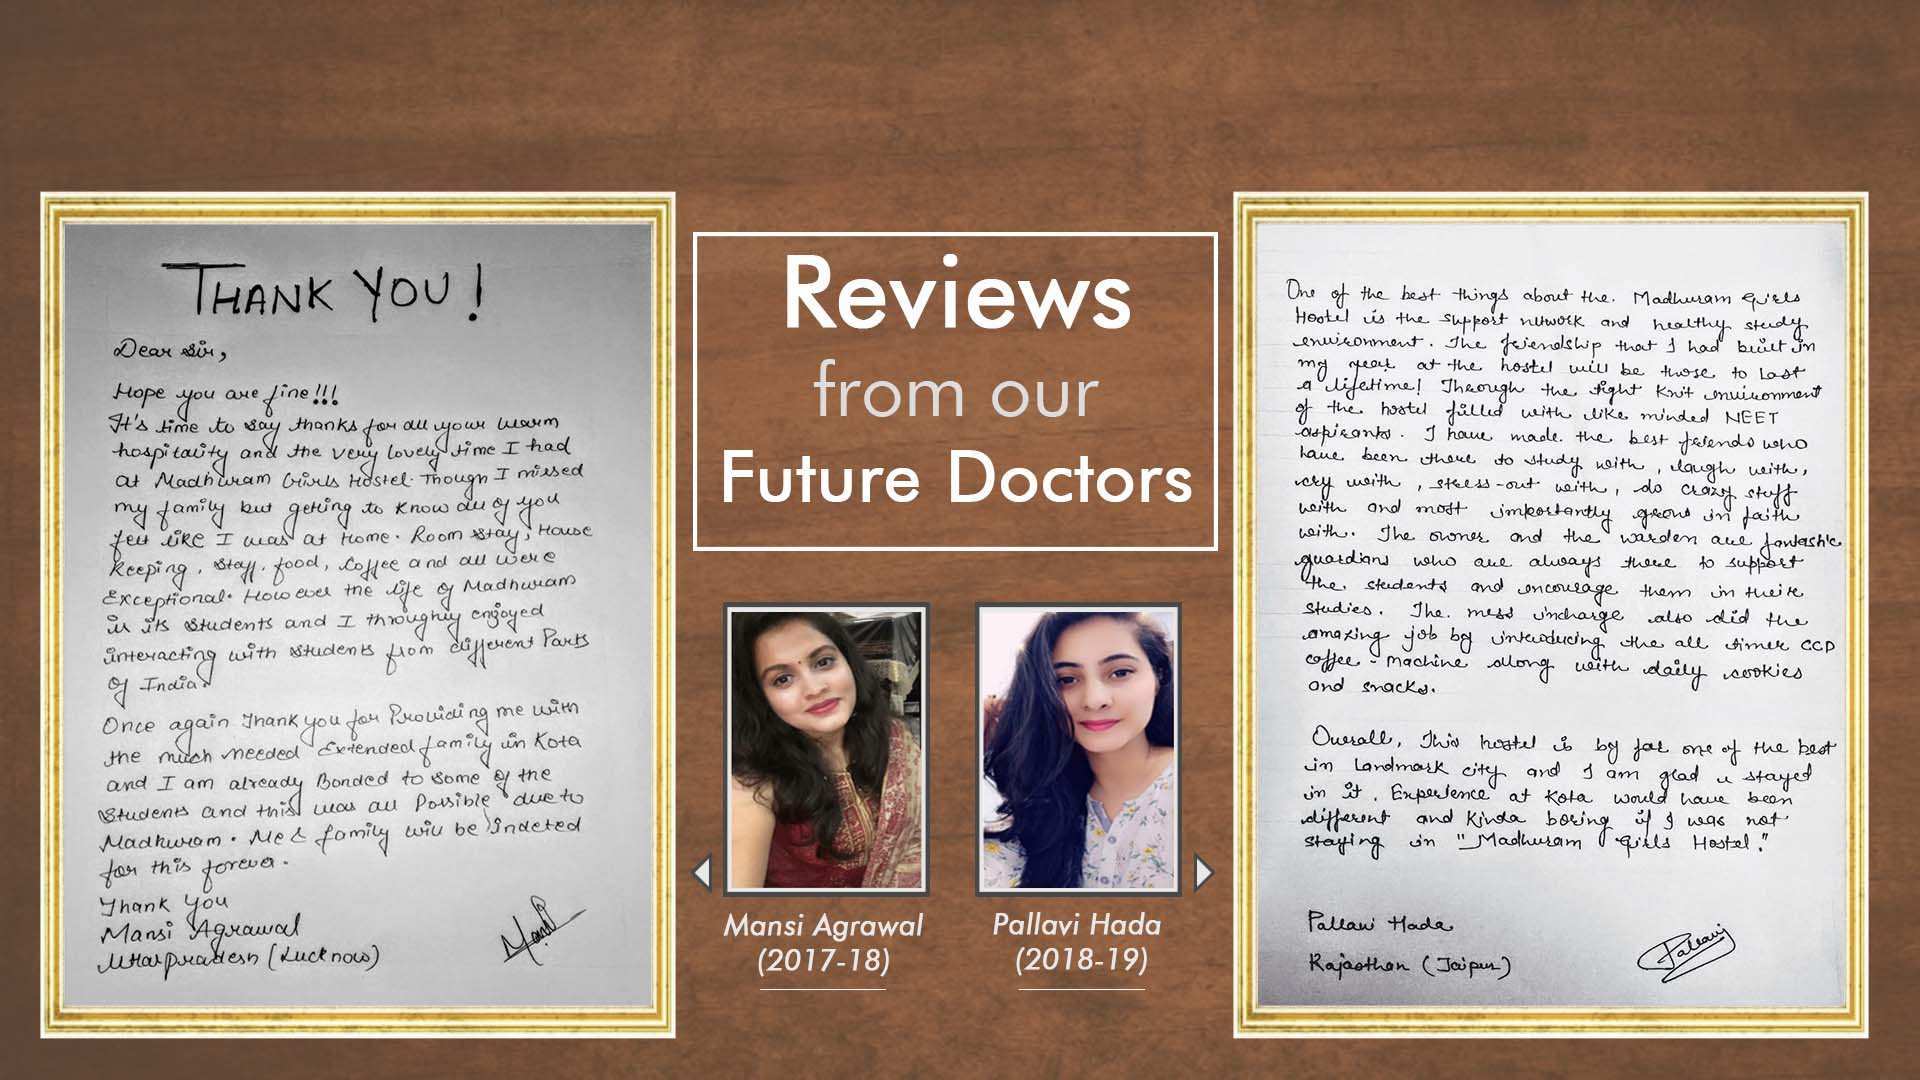 THANK YOU!
Dear Sir,
Hope you are fine!!!
It's time to say thanks for all your warm
hospitality and the very lovely time I had
at Madhuram Girls Hostel. Though I missed
my family but getting to know all of you
felt like I was at Home. Room stay, House
keeping, Staff, food, Coffee and all were
Exceptional. However the life of Madhuram
is its students and I throughly enjoyed
interacting with students from different Parts
of India.
Once again Thank you for Providing me with
the much needed Extended family in Kota
and I am already Bonded to some of the
Students and this was all Possible due to
Madhuram. Me & family will be Indeted
for this forever.
Thank You
Mansi Agrawal
Uttarpradesh (Lucknow)
Mansi
Reviews
from our
Future Doctors
Mansi Agrawal
(2017-18)
Pallavi Hada
(2018-19)
One of the best things about the. Madhuram Girls
Hostel is the support network and healthy study
environment. The friendship that I had built in
my year at the hostel will be those to Last
a lifetime! Through the tight knit environment
of the hostel filled with like minded NEET
aspirants. I have made the best friends who
have been there to study with, laugh with,
cry with, stress-out with, do crazy stuff
with and most importantly grow in faith
with. The owner and the warden are fantastic
guardians who are always there to support
the students and encourage them in their
studies. The mess incharge also did the
amazing job by introducing the all timer CCD
coffee-machine along with daily cookies
and snacks.
Overall, This hostel is by far one of the best
in Landmark city and I am glad u stayed
in it. Experience at Kota would have been
different and kinda boring if I was not
staying in "Madhuram Girls Hostel."
Pallavi Hada
Rajasthan (Jaipur)
Pallavi